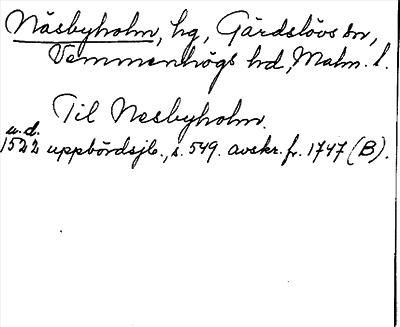 Näsbyholm, hg, Gärdslövs sn,
Vemmenhögs hd, Malm. l.
Til Nesbyholm.
u.d.
1522 uppbördsjb., s. 549. avskr. fr. 1747 (B).